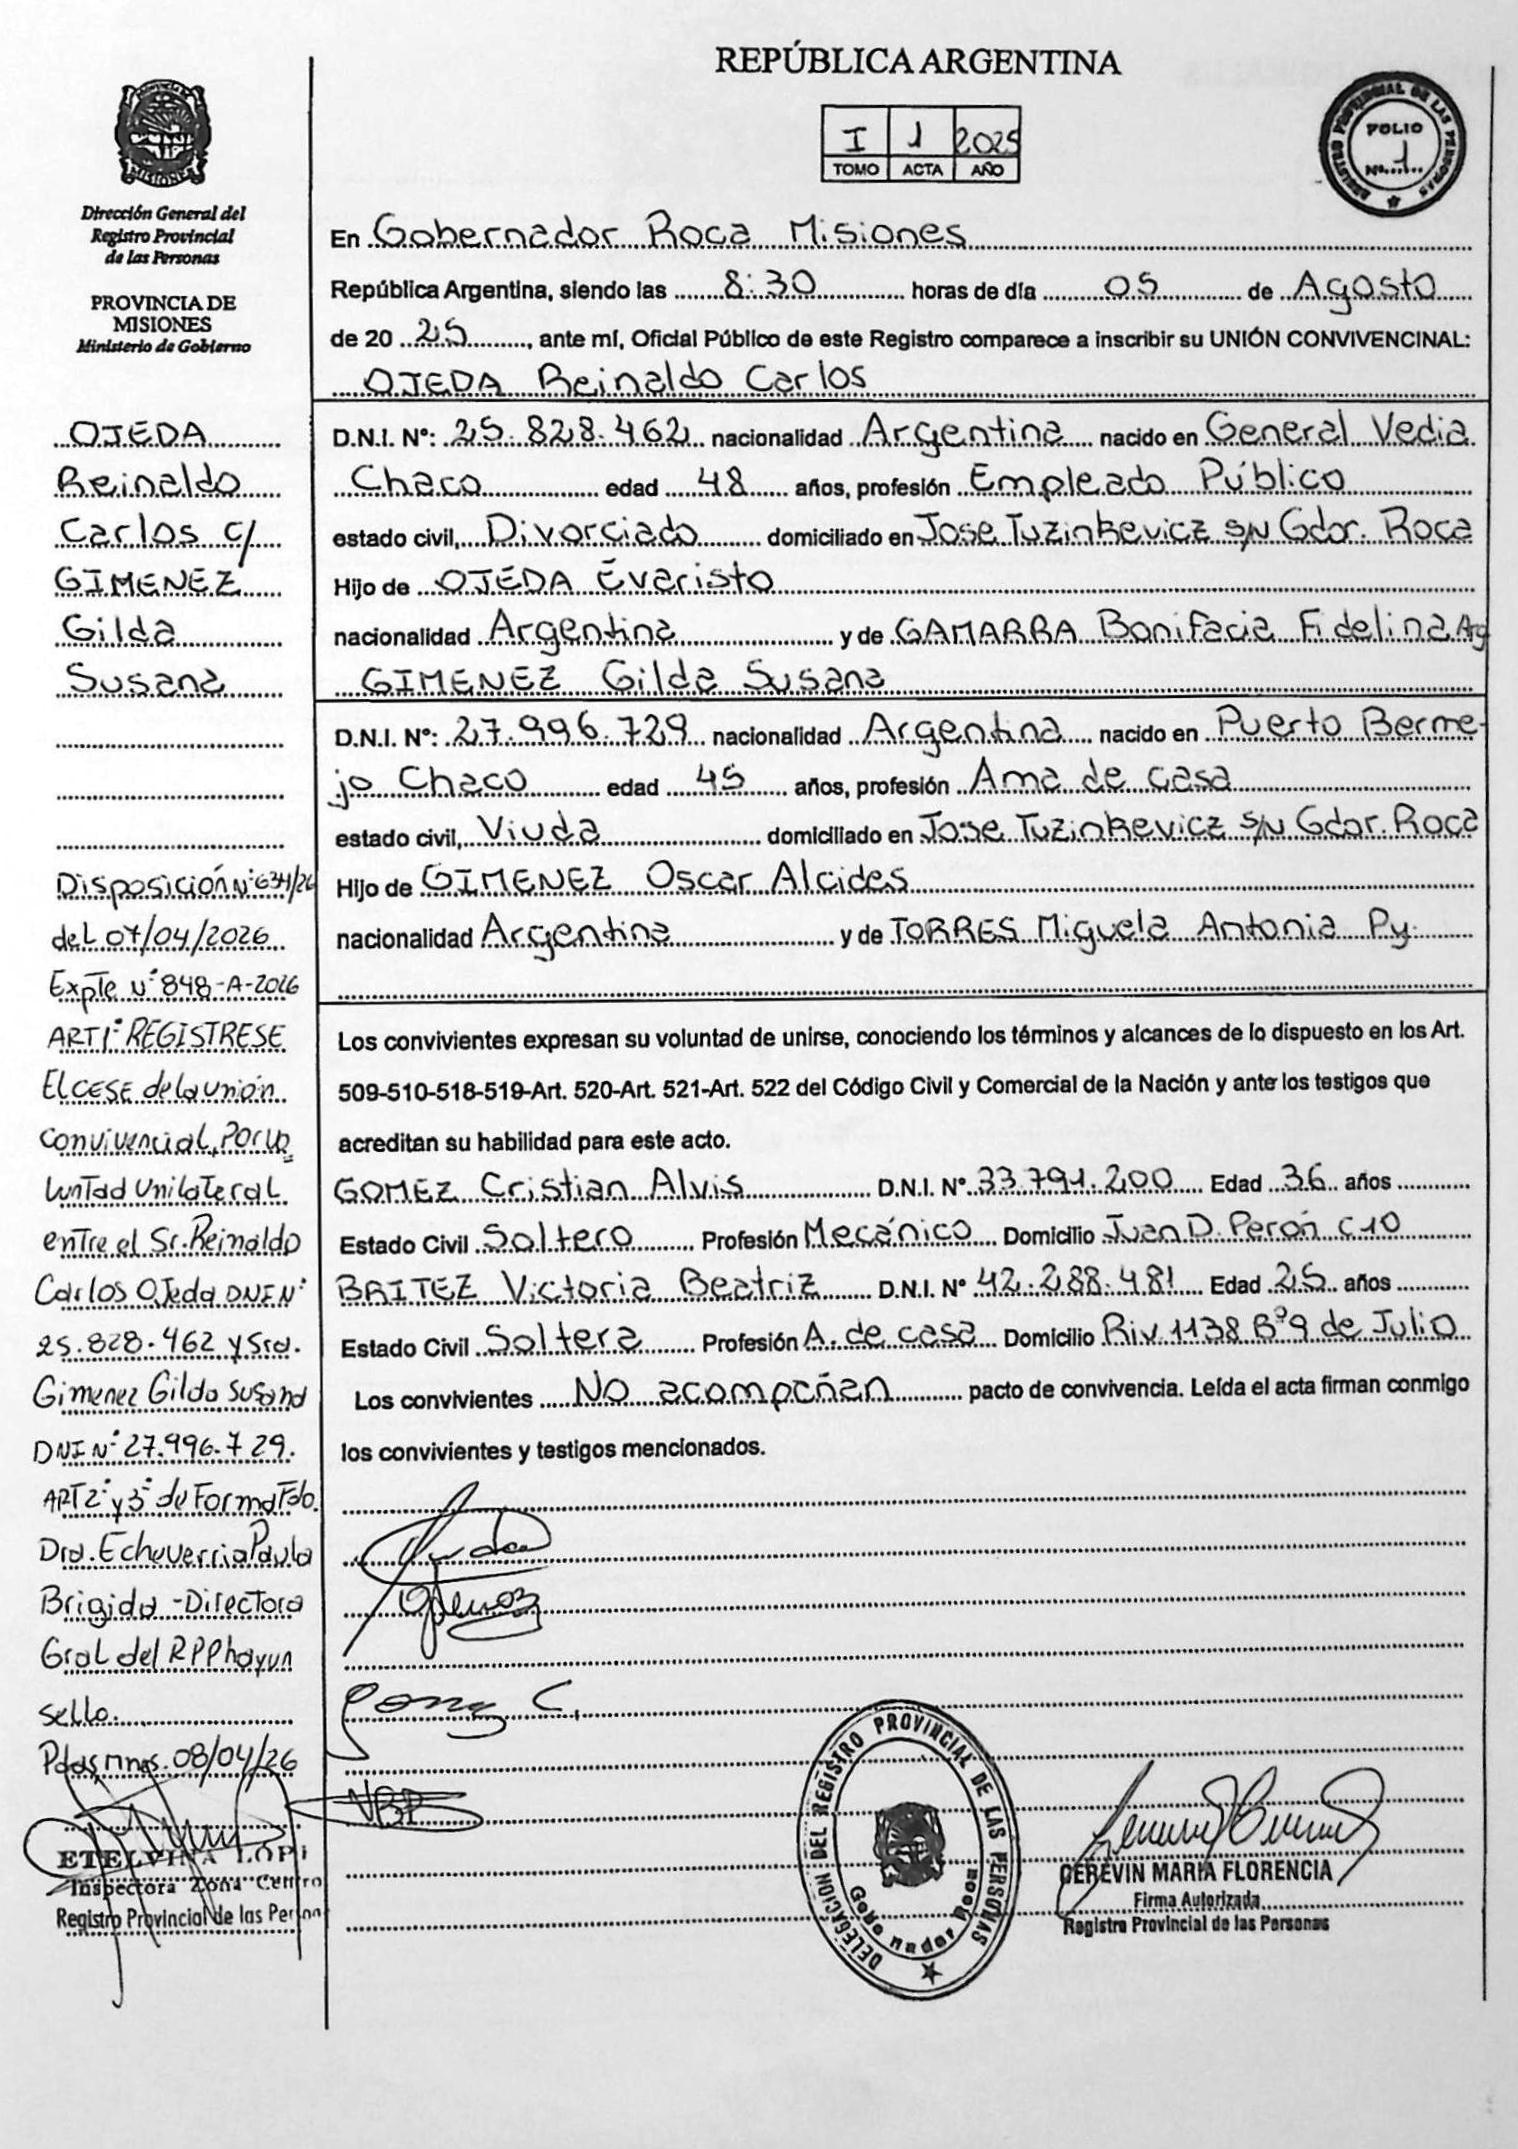 REPÚBLICA ARGENTINA
I 1 2025
TOMO ACTA AÑO
REGISTRO PROVINCIAL DE LAS PERSONAS
FOLIO
Nº 1
PROVINCIA DE
MISIONES
Dirección General del
Registro Provincial
de las Personas
PROVINCIA DE
MISIONES
Ministerio de Gobierno
OJEDA
Reinaldo
Carlos c/
GIMENEZ
Gilda
Susana
Disposición Nº 634/26
del 07/04/2026
Expte Nº 848-A-2026
ART 1º REGISTRESE
El CESE de la unión
convivencial, Por vo
luntad Unilateral
entre el Sr. Reinaldo
Carlos Ojeda DNI Nº
25.828.462 y Sra.
Gimenez Gilda Susana
DNI Nº 27.996.729.
ART 2º y 3º de Forma Fdo.
Dra. Echeverria Paula
Brigida - Directora
Gral del RPP hay un
sello.
Pdas mnes. 08/04/26
ETELVINA LOPE
Inspectora Zona Centro
Registro Provincial de las Person
En Gobernador Roca Misiones
República Argentina, siendo las 8:30 horas de día 05 de Agosto
de 20 25, ante mí, Oficial Público de este Registro comparece a inscribir su UNIÓN CONVIVENCINAL:
OJEDA Reinaldo Carlos
D.N.I. Nº: 25.828.462 nacionalidad Argentina nacido en General Vedia
Chaco edad 48 años, profesión Empleado Público
estado civil, Divorciado domiciliado en Jose Tuzinkevicz s/N Gdor. Roca
Hijo de OJEDA Evaristo
nacionalidad Argentina y de GAMARRA Bonifacia Fidelina Arg
GIMENEZ Gilda Susana
D.N.I. Nº: 27.996.729 nacionalidad Argentina nacido en Puerto Berme-
jo Chaco edad 45 años, profesión Ama de casa
estado civil, Viuda domiciliado en Jose Tuzinkevicz s/N Gdor. Roca
Hijo de GIMENEZ Oscar Alcides
nacionalidad Argentina y de TORRES Miguela Antonia Py.
Los convivientes expresan su voluntad de unirse, conociendo los términos y alcances de lo dispuesto en los Art.
509-510-518-519-Art. 520-Art. 521-Art. 522 del Código Civil y Comercial de la Nación y ante los testigos que
acreditan su habilidad para este acto.
GOMEZ Cristian Alvis D.N.I. Nº 33.791.200 Edad 36 años
Estado Civil Soltero Profesión Mecánico Domicilio Juan D. Perón C10
BRITEZ Victoria Beatriz D.N.I. Nº 42.288.481 Edad 25 años
Estado Civil Soltera Profesión A. de casa Domicilio Riv. 1138 Bº 9 de Julio
Los convivientes No acompañan pacto de convivencia. Leída el acta firman conmigo
los convivientes y testigos mencionados.
VBP
DELEGACION DEL REGISTRO PROVINCIAL DE LAS PERSONAS
Gobernador Roca
CEREVIN MARIA FLORENCIA
Firma Autorizada
Registro Provincial de las Personas